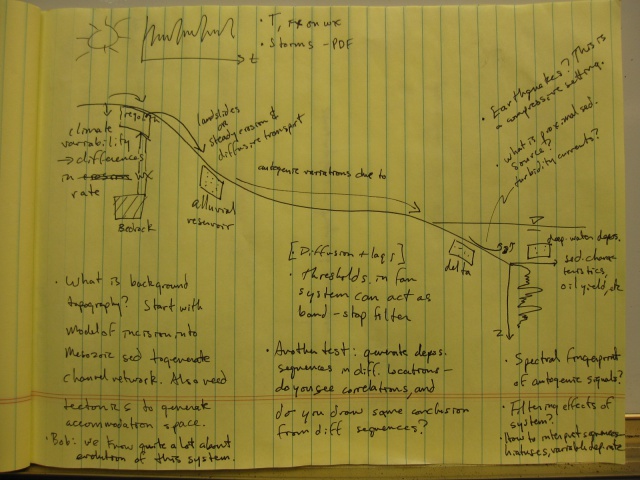 • T, rx on wx
• Storms - PDF
t
• Earthquakes? This is
a compressive setting.
• What is proximal sed.
source?
turbidity currents?
regolith
landslides
or
steady erosion &
diffusive transport
climate
variability
→ differences
in erosion wx
rate
Bedrock
alluvial
reservoir
autogenic variations due to
delta
deep-water depos.
sed. charac
teristics,
oil yield, etc
z
[Diffusion + lags]
• thresholds in fan
system can act as
band-stop filter
• What is background
topography? Start with
model of incision into
Mesozoic sed to generate
channel network. Also need
tectonics to generate
accommodation space.
• Bob: we know quite a lot about
evolution of this system.
• Another test: generate depos.
sequences in diff. locations -
do you see correlations, and
do you draw same conclusion
from diff sequences?
• Spectral fingerprint
of autogenic signals?
• Filtering effects of
system?
• How to interpret sequences -
hiatuses, variable dep rate